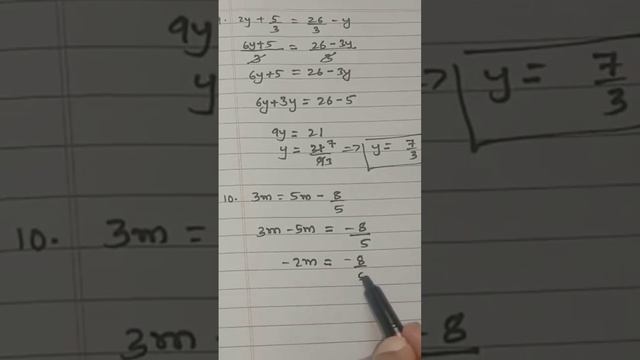 9. 2y + 5/3 = 26/3 - y
6y+5/3 = 26-3y/3
6y+5 = 26-3y
6y+3y = 26-5
9y = 21
y = 21 7/9 3 => y = 7/3
10. 3m = 5m - 8/5
3m - 5m = -8/5
-2m = -8/5
9y
y
=> y = 7/3
10. 3m =
3m
-8